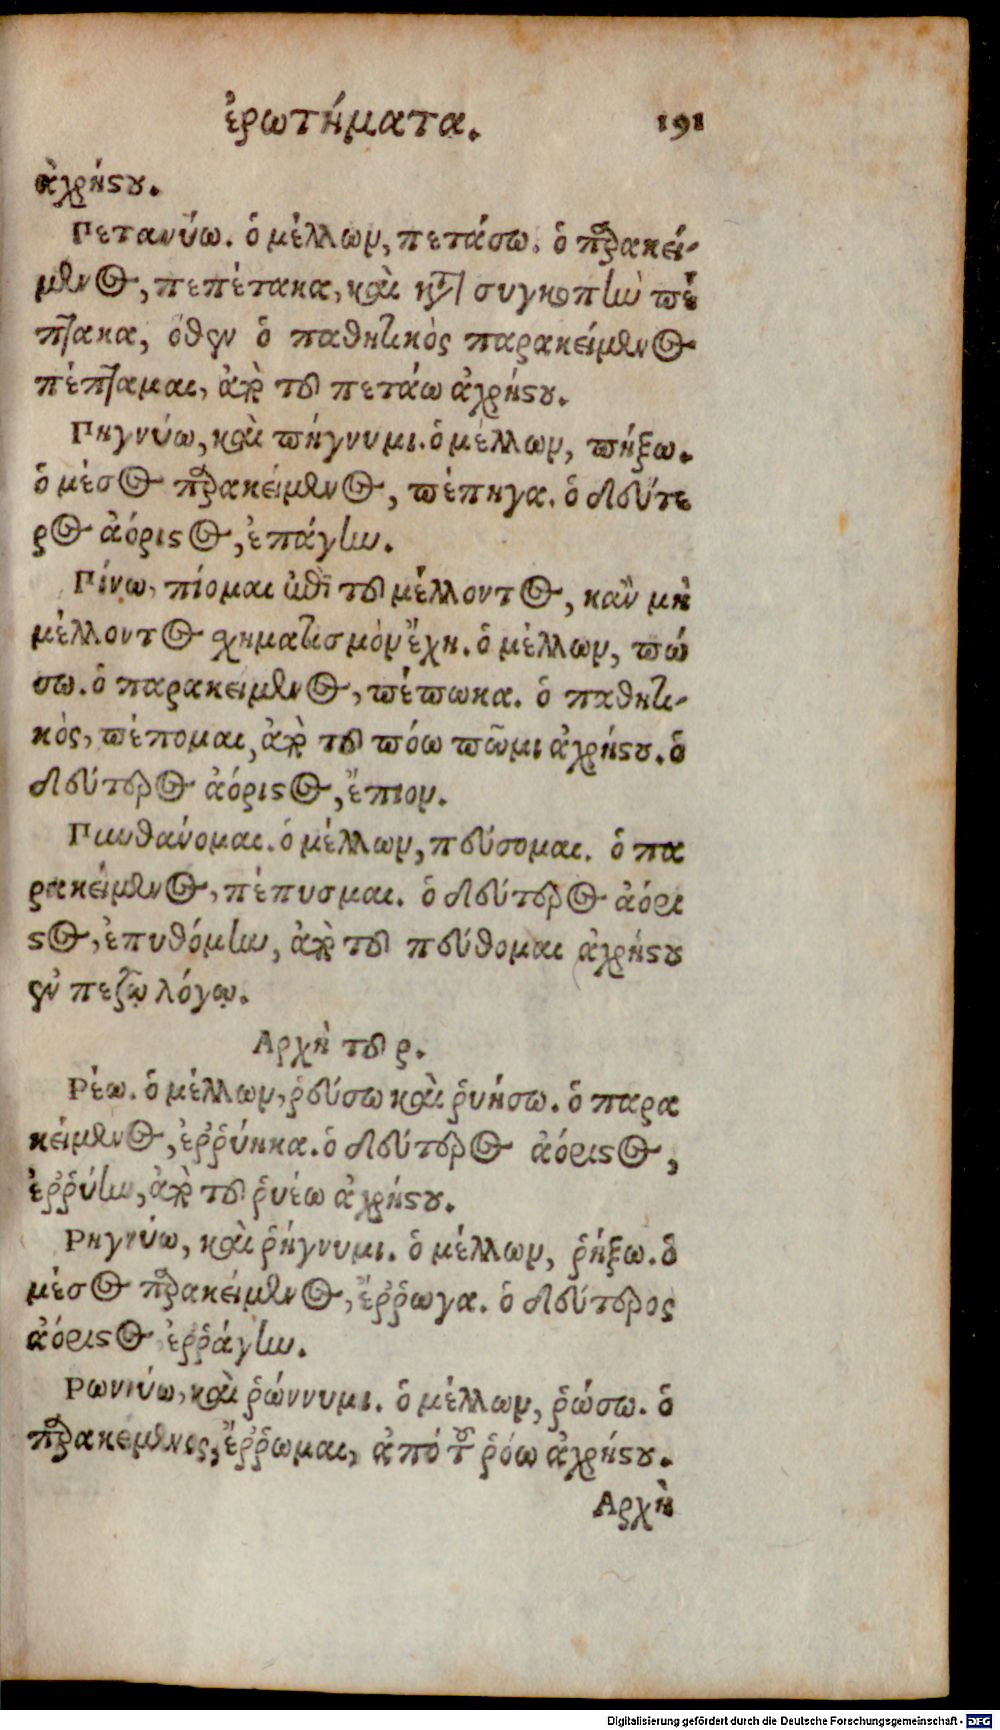 ἐρωτήματα. 191
ἀχρήστου.
Πετανύω. ὁ μέλλων, πετάσω. ὁ παρακεί-
μενος, πεπέτακα, καὶ κατὰ συγκοπὴν πέ
πτακα, ὅθεν ὁ παθητικὸς παρακείμενος
πέπταμαι, ἀπὸ τοῦ πετάω ἀχρήστου.
Πηγνύω, καὶ πήγνυμι. ὁ μέλλων, πήξω.
ὁ μέσος παρακείμενος, πέπηγα. ὁ δεύτε
ρος ἀόριστος, ἐπάγην.
Πίνω, πίομαι ἀντὶ τοῦ μέλλοντος, κἂν μὴ
μέλλοντος χηματισμὸν ἔχη. ὁ μέλλων, πώ
σω. ὁ παρακειμενος, πέπωκα. ὁ παθητι-
κὸς, πέπομαι, ἀπὸ τοῦ πόω πῶμι ἀχρήστου. ὁ
δεύτερος ἀόριστος, ἔπιον.
Πυνθάνομαι. ὁ μέλλων, πεύσομαι. ὁ πα
ρακείμενος, πέπυσμαι. ὁ δεύτερος ἀόρι
στος, ἐπυθόμην, ἀπὸ τοῦ πεύθομαι ἀχρήστου
ἐν πεζῷ λόγῳ.
Αρχὴ τοῦ ρ.
Ρέω. ὁ μέλλων, ῥεύσω καὶ ῥυήσω. ὁ παρα
κείμενος, ἐῤῥύηκα. ὁ δεύτερος ἀόριστος,
ἐῤῥύην, ἀπὸ τοῦ ῥυέω ἀχρήστου.
Ρηγνύω, καὶ ῥήγνυμι. ὁ μέλλων, ῥήξω. ὁ
μέσος παρακείμενος, ἔῤῥωγα. ὁ δεύτερος
ἀόριστος ἐῤῥάγην.
Ρωννύω, καὶ ῥώννυμι. ὁ μέλλων, ῥώσω. ὁ
παρακείμενος, ἔῤῥωμαι, ἀπό τοῦ ῥόω ἀχρήστου.
Αρχὴ
Digitalisierung gefördert durch die Deutsche Forschungsgemeinschaft - DFG